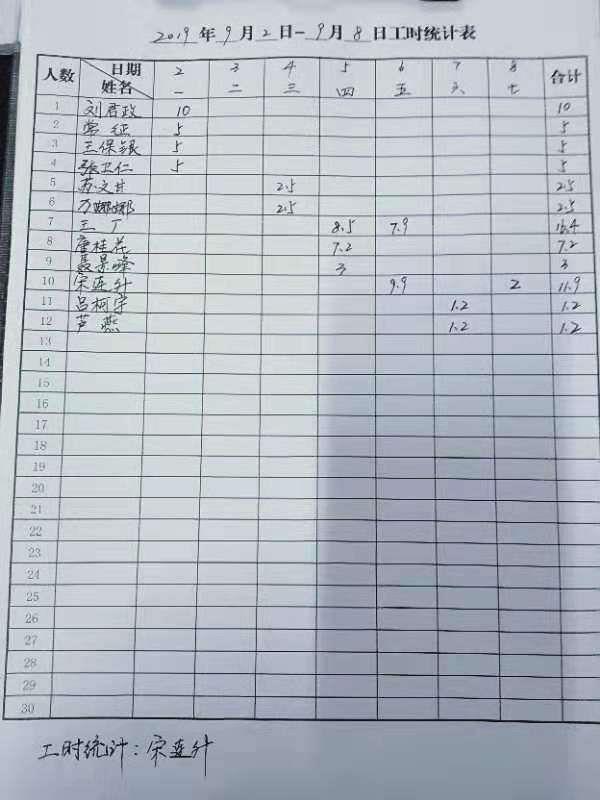 2019年9月2日-9月8日工时统计表
人数 日期 姓名 2 3 4 5 6 7 8 合计
一 二 三 四 五 六 七
1 刘君政 10 10
2 常征 5 5
3 王保银 5 5
4 张卫仁 5 5
5 苏文甘 2.5 2.5
6 万娜娜 2.5 2.5
7 王丁 8.5 7.9 16.4
8 唐桂花 7.2 7.2
9 聂景峰 3 3
10 宋连升 9.9 2 11.9
11 吕柯宇 1.2 1.2
12 芦燕 1.2 1.2
13
14
15
16
17
18
19
20
21
22
23
24
25
26
27
28
29
30
工时统计:宋连升